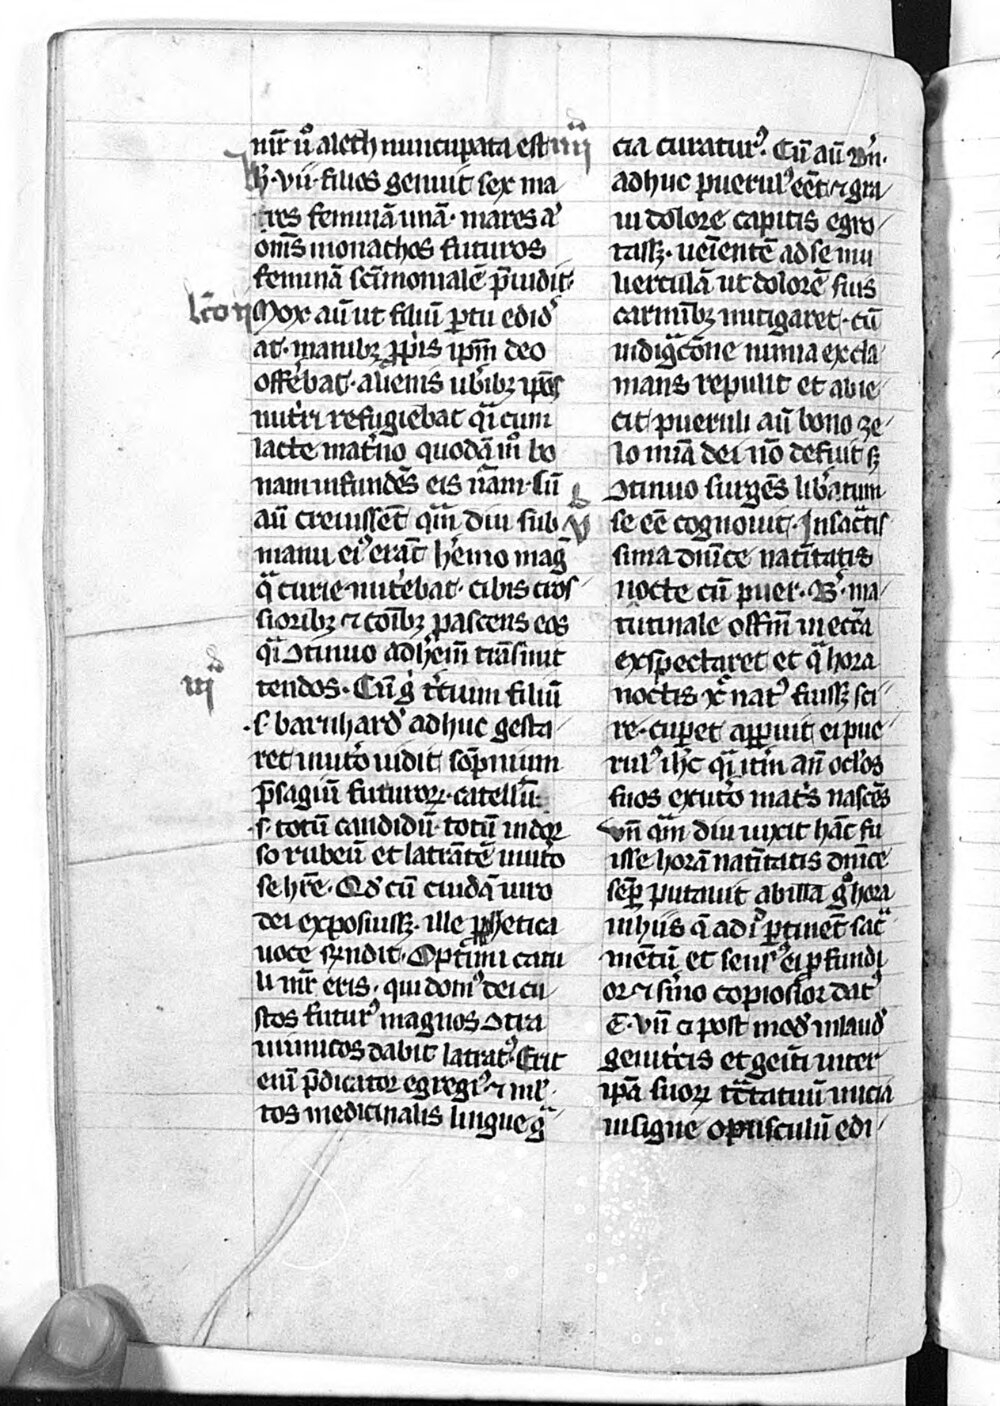 mr̄ v̊o aleth nuncupata est
hec .vii. filios genuit sex ma
res feminā unā. mares a'
om̄s monachos futuros
feminā scīmonialē p̄uidit.
lc̄o ii Mox aūt ut filiū ptu edid'
at. manibꝫ ꝓp̄iis ip̄m deo
offerebat. alienis ub'ibꝫ ip̄os
nutriri refugiebat q̄i cum
lacte mat'no quodā mō bo
nam infundēs eis nām. Cū
aū creuissent q̄m diu sub
manu ei' erāt h'emo maḡ
q̄ curie nut'ebat. cibis gros
sioribꝫ ⁊ cōibꝫ pascens eos
q̄i ↄtinuo ad h'emū trāsmit
iii tendos. Cū g̊ t'cium filiū
.s. barnhard' adhuc gesta
ret in ut'o uidit sōpnium
p̄sagiū futurorꝝ. catellū
.s. totū candidū totū in dor
so rubeū et latrantē in ut'o
se hr̄e. Qd' cū cuidā uiro
dei exposuissꝫ. ille ꝓphetica
uoce rn̄dit. Optimi catu
li mr̄ eris. qui dom' dei cu
stos futur' magnos ↄtra
inimicos dabit latrat'. Erit
enī p̄dicator egregi' ⁊ ml'
tos medicinalis lingue gr̄a
iiii cia curatur'. Cū aū b'n.
adhuc puerul' eēt ⁊ gra
ui dolore capitis egro
tassꝫ. uenientē ad se mu
lierculā ut dolorē suis
carmībꝫ mitigaret. cū
indignac̄one nimia excla
mans repulit et abie
cit pueruli aū bono ze
lo mīa dei nō defuit sꝫ
ↄtinuo surgēs lib'atum
v se eē cognouit. In sac̄tis
sima dnīce natiuitatis
nocte cū puer .B'. ma
tutinale offm̄ in ecc̄ia
exspectaret et q̄ hora
noctis xp̄c nat' fuissꝫ sci
re cuperet apparuit ei pue
rul' ih'c q̄i itm̄ an̄ oc'los
suos ex ut'o mat's nascēs
Vn̄ q̄m diu uixit hāc fu
isse horā natiuitatis dnīce
semp putauit ab illa g̊ hora
in hiis q̄ ad i' ptinēt sac̄
mentū et sens' ei pfundi
or ⁊ s'mo copiosior dat'
ē. vn̄ ⁊ post mod' in laud'
genit'cis et geniti inter
ip̄a suorꝝ tc̄tatuū inicia
insigne opusculū edi